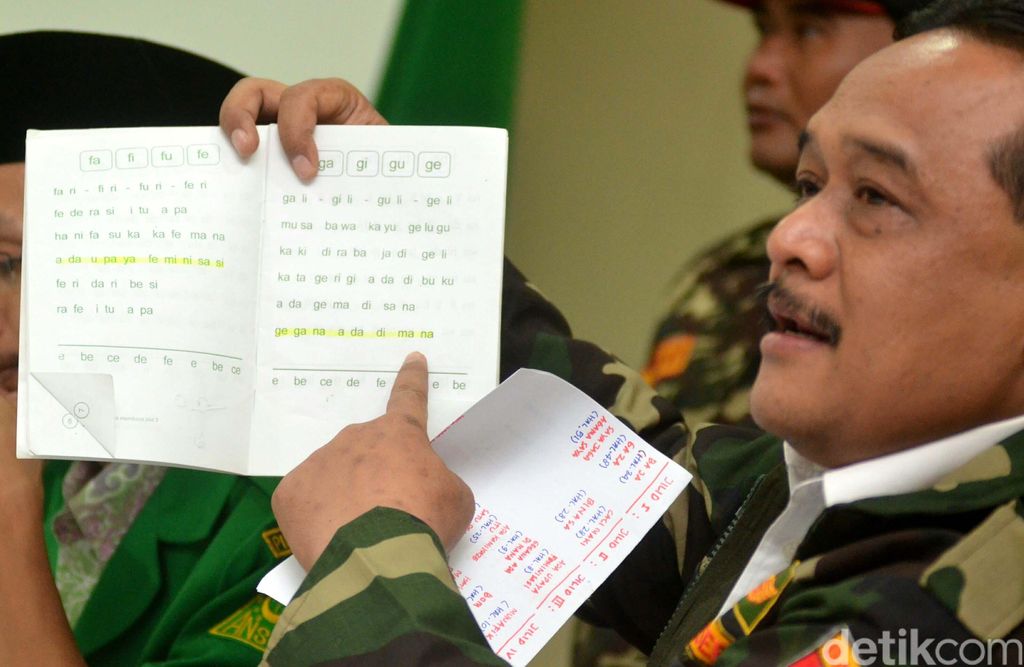 fa fi fu fe
fa ri - fi ri - fu ri - fe ri
fe de ra si i tu a pa
ha ni fa su ka ka fe ma na
a da u pa ya fe mi ni sa si
fe ri da ri be si
ra fe i tu a pa
e be ce de fe e be ce
ga gi gu ge
ga li - gi li - gu li - ge li
mu sa ba wa ka yu ge lu gu
ka ki di ra ba ja di ge li
ka ta ge ri gi a da di bu ku
a da ge ma di sa na
ge ga na a da di ma na
e be ce de fe e be
JILID I :
BA JA
(HAL. 34)
SAYA JAGA
AGAMA SAYA
JILID II :
CARI MAKI
BINASA
(HAL. 28)
JILID III :
ADA UPAYA
FEMINISASI
GEGANA ADA
DI MANA
JILID IV
MUNAFIK
BOM
ANSO
detikcom